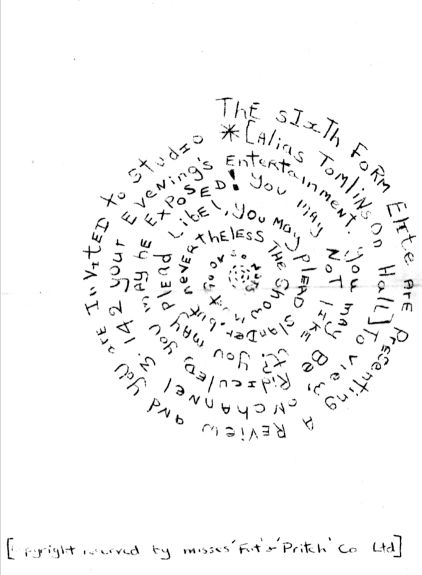 THE SIxTH FORM Elite ARE Presenting A REViEW and you are INVITED to STUDIO
*[Alias TOMLINSON Hall] To view, ON CHANNEL 3. 142 your Evening's
ENTERTAINMENT. you may Be Ridiculed, you may be EXPOSED!
You may NOT LIKE it? you may PLEAD Libel,
you may PLEAD Slander. but NEVERTHELESS
THE Show
[Copyright reserved by misses 'Fut's' 'Pritch' Co Ltd]